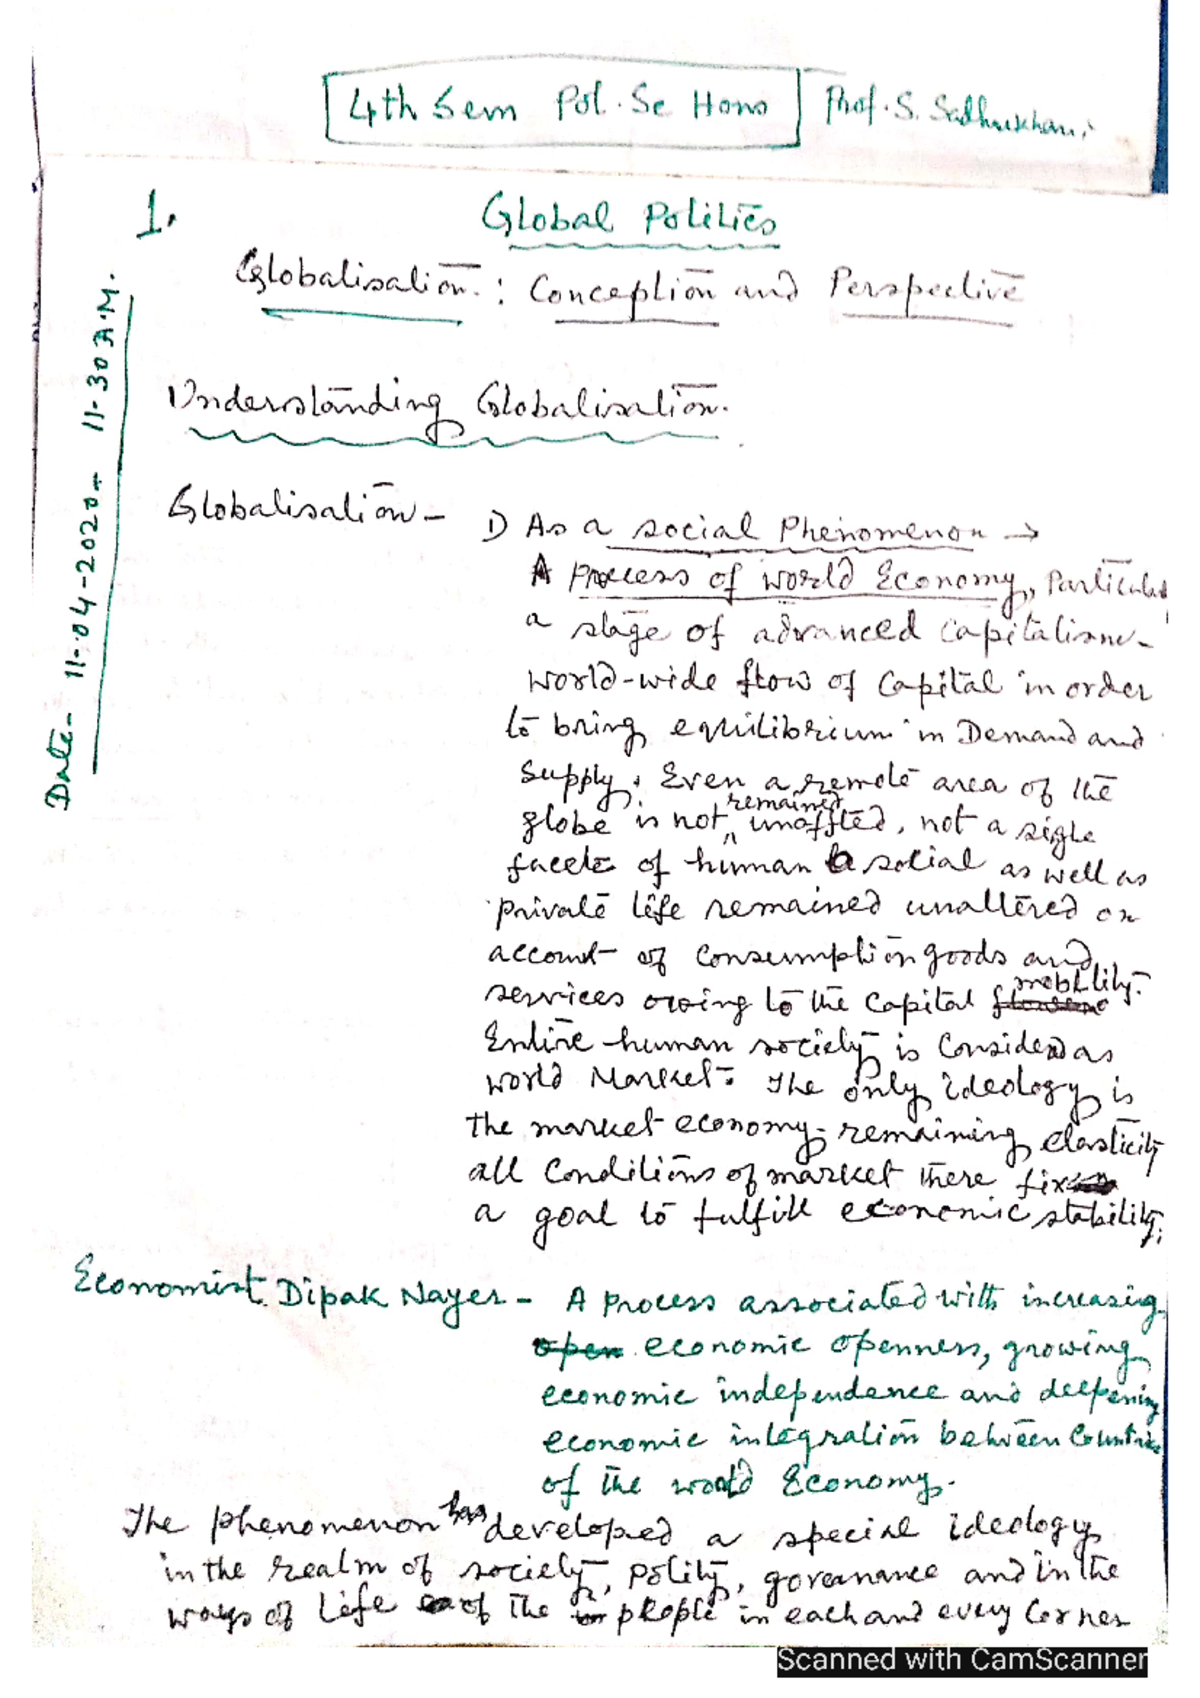 4th Sem Pol. Sc Hons Prof. S. Sadhukhan
1.
Global Politics
Globalisation : Conception and Perspective
Date- 11-04-2020- 11-30 A.M.
Understanding Globalisation.
Globalisation - 1) As a social Phenomenon →
A Process of world Economy, Particular
a stage of advanced capitalism-
world-wide flow of capital in order
to bring equilibrium in Demand and
Supply. Even a remote area of the
globe is not remained unaffted, not a sigle
facete of human social as well as
private life remained unaltered on
account of consumption goods and
services owing to the capital mobility.
Entire human society is considered as
world Market. The only ideology is
the market economy- remaining elasticity
all conditions of market there fix
a goal to fulfill economic stability.
Economist Dipak Nayer - A Process associated with increasing
open economic openness, growing
economic independence and deepening
economic integration between Countries
of the world Economy.
The phenomenon has developed a special ideology
in the realm of society, polity, governance and in the
ways of life of the people in each and every corner
Scanned with CamScanner